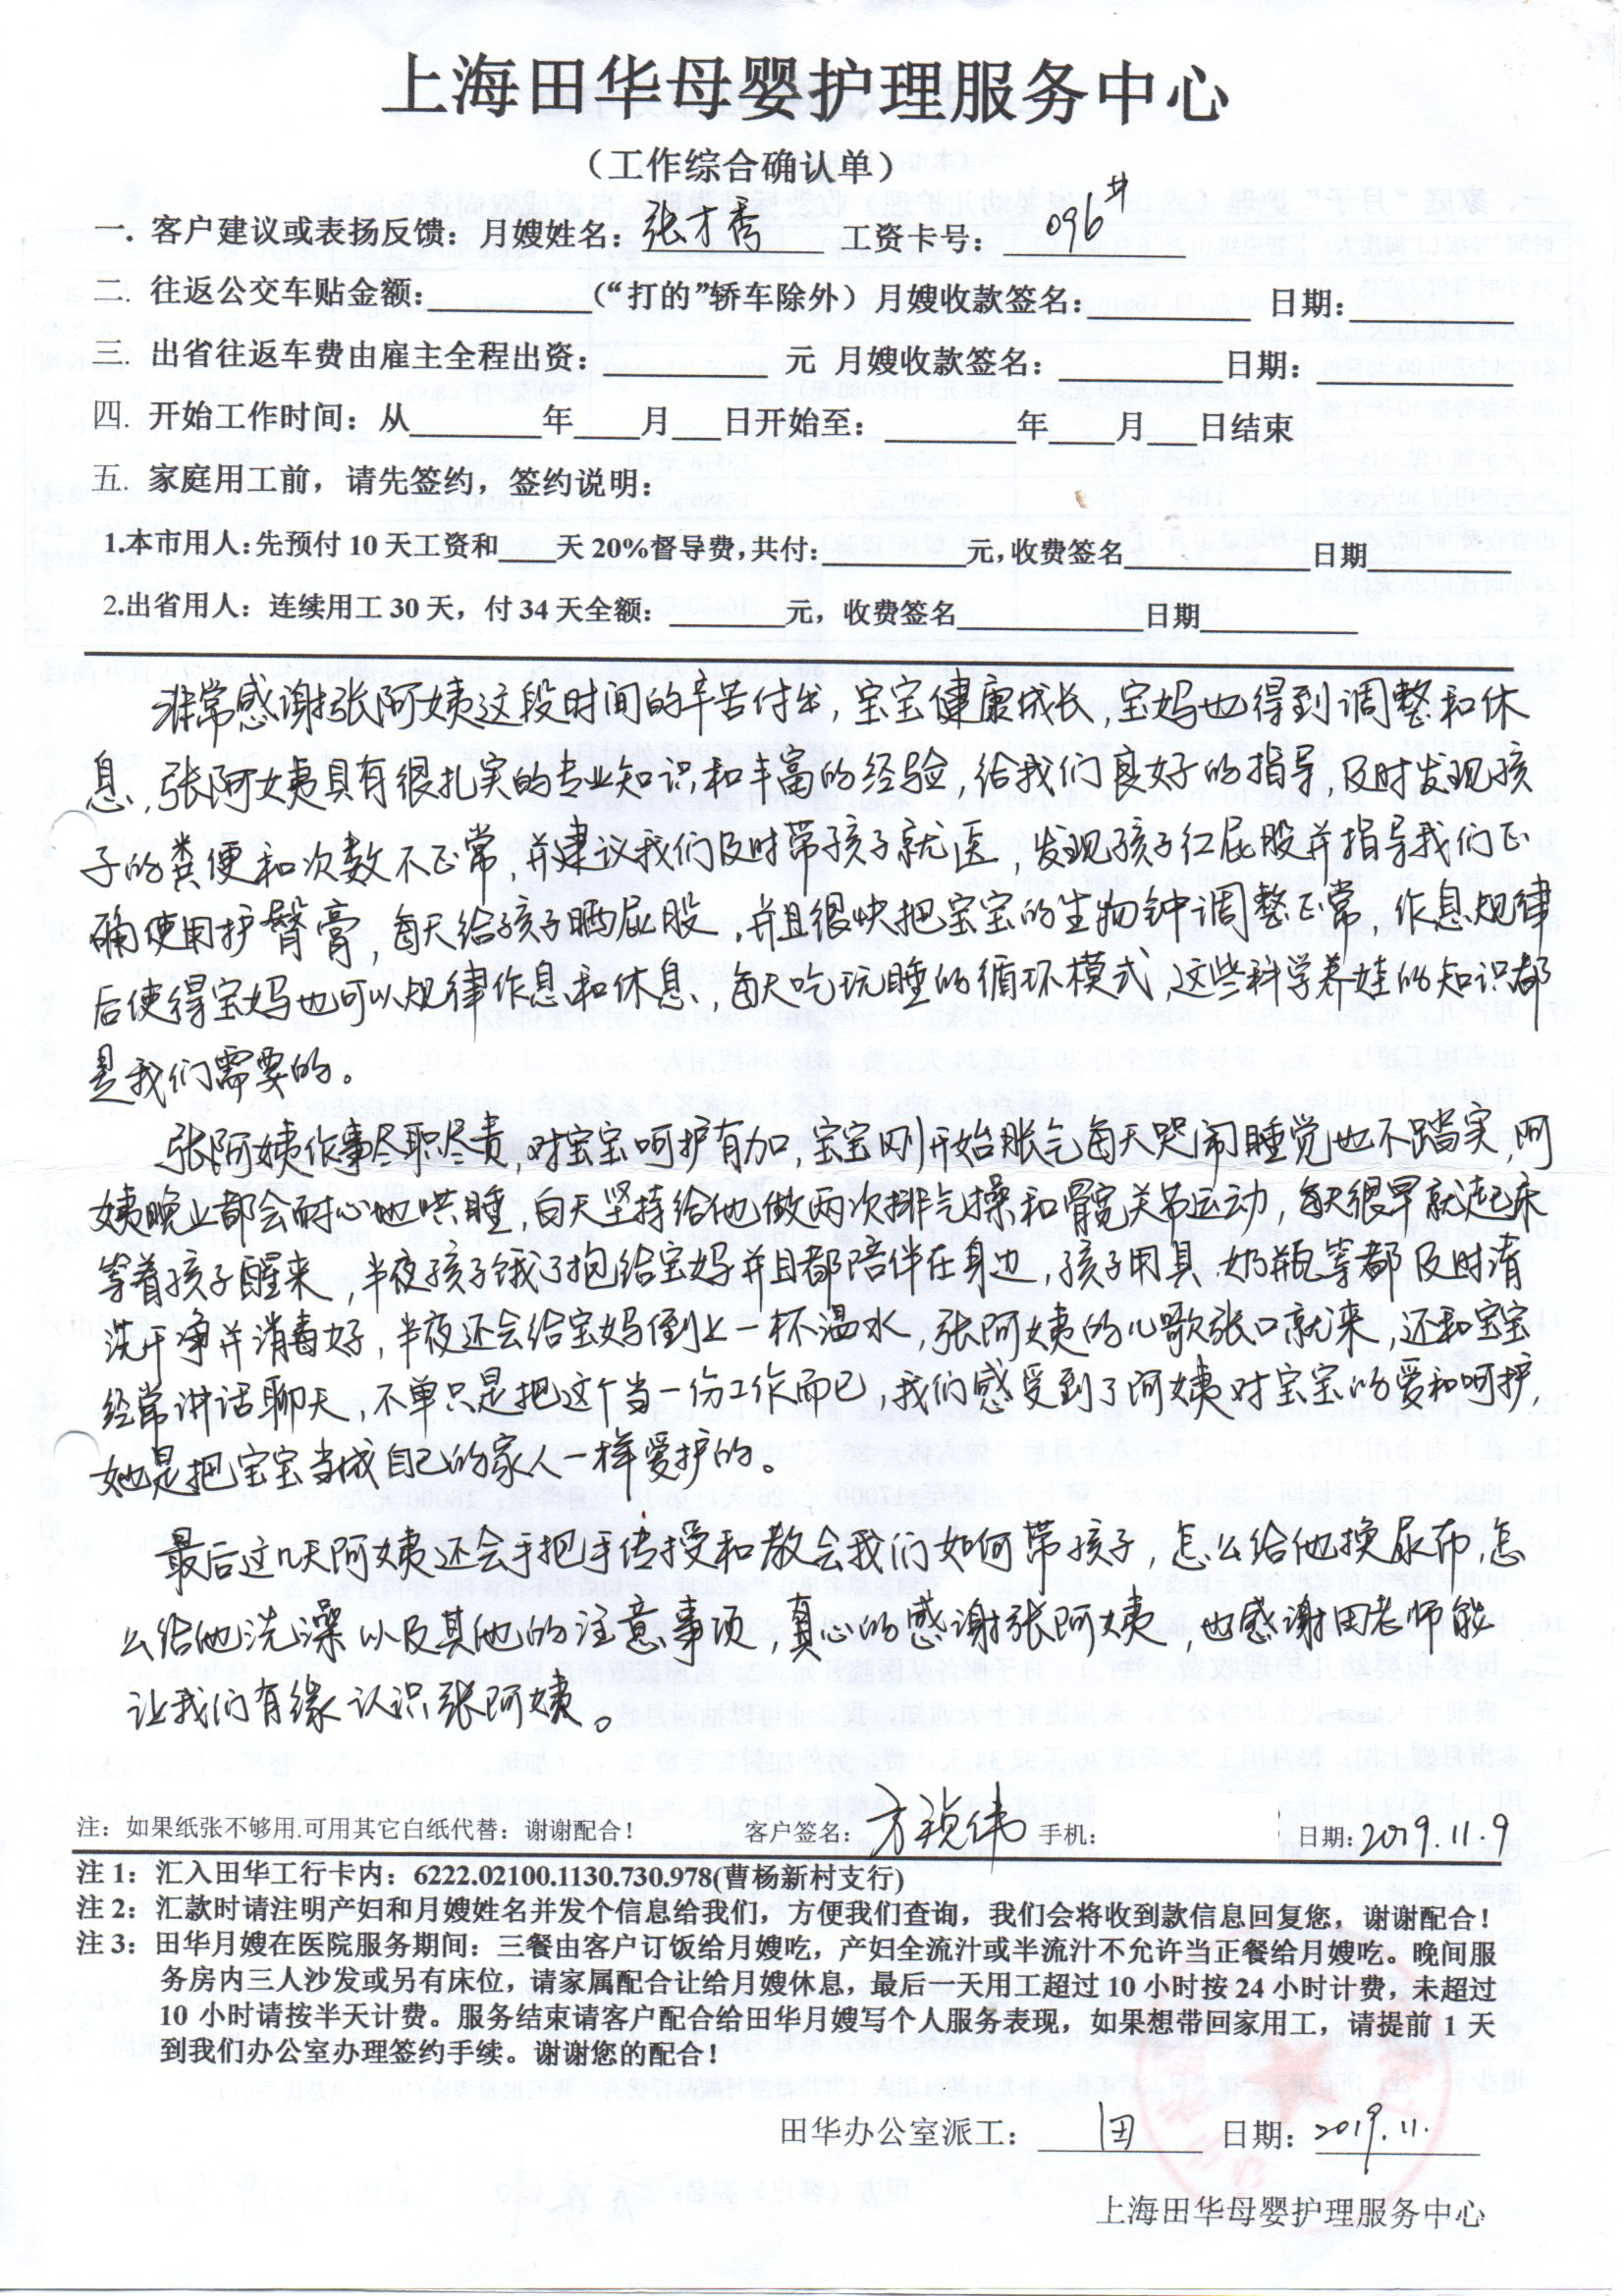 上海田华母婴护理服务中心
（工作综合确认单）
一. 客户建议或表扬反馈：月嫂姓名：张才秀 工资卡号：096#
二. 往返公交车贴金额：____（“打的”轿车除外）月嫂收款签名：____ 日期：____
三. 出省往返车费由雇主全程出资：____ 元 月嫂收款签名：____ 日期：____
四. 开始工作时间：从____年____月____日开始至：____年____月____日结束
五. 家庭用工前，请先签约，签约说明：
1.本市用人：先预付 10 天工资和____天 20%督导费，共付：____元，收费签名____日期____
2.出省用人：连续用工 30 天，付 34 天全额：____元，收费签名____日期____
非常感谢张阿姨这段时间的辛苦付出，宝宝健康成长，宝妈也得到调整和休
息，张阿姨具有很扎实的专业知识和丰富的经验，给我们良好的指导，及时发现孩
子的粪便和次数不正常，并建议我们及时带孩子就医，发现孩子红屁股并指导我们正
确使用护臀膏，每天给孩子晒屁股，并且很快把宝宝的生物钟调整正常，作息规律
后使得宝妈也可以规律作息和休息，每天吃玩睡的循环模式，这些科学养娃的知识都
是我们需要的。
张阿姨做事尽职尽责，对宝宝呵护有加，宝宝刚开始胀气每天哭闹睡觉也不踏实，阿
姨晚上都会耐心地哄睡，白天坚持给他做两次排气操和髋关节运动，每天很早就起床
等着孩子醒来，半夜孩子饿了抱给宝妈并且都陪伴在身边，孩子用具，奶瓶等都及时清
洗干净并消毒好，半夜还会给宝妈倒上一杯温水，张阿姨的儿歌张口就来，还和宝宝
经常讲话聊天，不单只是把这个当一份工作而已，我们感受到了阿姨对宝宝的爱和呵护，
她是把宝宝当成自己的家人一样爱护的。
最后这几天阿姨还会手把手传授和教会我们如何带孩子，怎么给他换尿布，怎
么给他洗澡以及其他的注意事项，真心的感谢张阿姨，也感谢田老师能
让我们有缘认识张阿姨。
注：如果纸张不够用.可用其它白纸代替：谢谢配合！ 客户签名：方祯伟 手机： 日期：2019.11.9
注 1：汇入田华工行卡内：6222.02100.1130.730.978(曹杨新村支行)
注 2：汇款时请注明产妇和月嫂姓名并发个信息给我们，方便我们查询，我们会将收到款信息回复您，谢谢配合！
注 3：田华月嫂在医院服务期间：三餐由客户订饭给月嫂吃，产妇全流汁或半流汁不允许当正餐给月嫂吃。晚间服
务房内三人沙发或另有床位，请家属配合让给月嫂休息，最后一天用工超过 10 小时按 24 小时计费，未超过
10 小时请按半天计费。服务结束请客户配合给田华月嫂写个人服务表现，如果想带回家用工，请提前 1 天
到我们办公室办理签约手续。谢谢您的配合！
田华办公室派工：田 日期：2019.11.
上海田华母婴护理服务中心